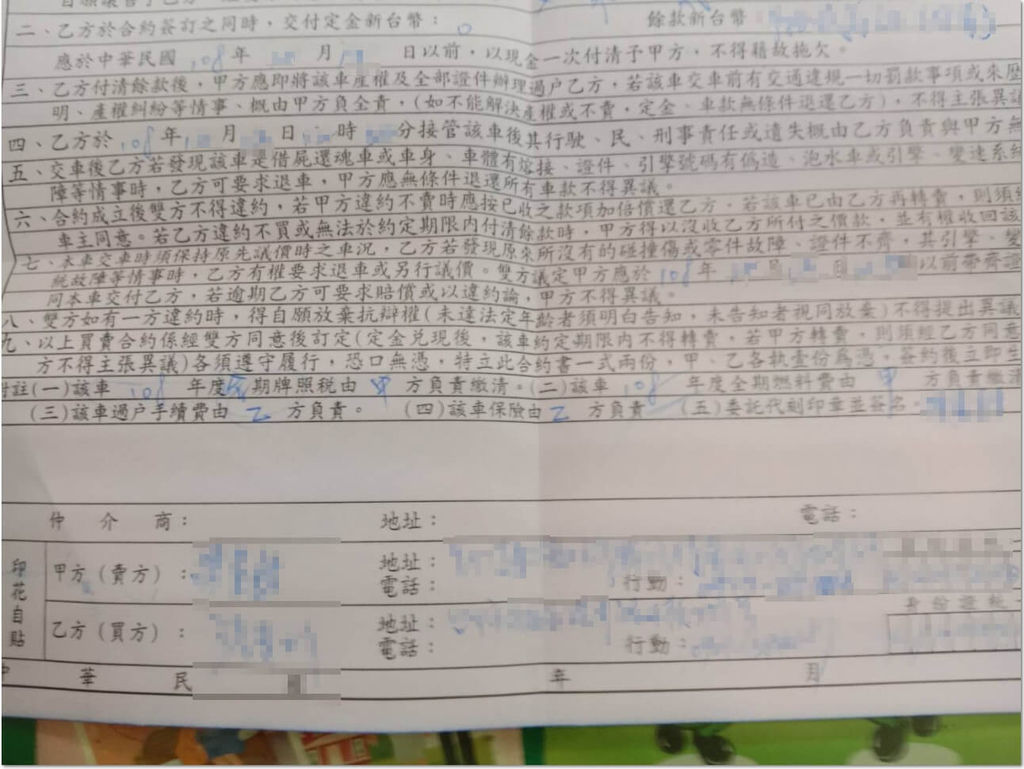 自願讓售予乙方，
二、乙方於合約簽訂之同時，交付定金新台幣： 0 餘款新台幣
應於中華民國 108 年 月 日以前，以現金一次付清予甲方，不得藉故拖欠。
三、乙方付清餘款後，甲方應即將該車產權及全部證件辦理過戶乙方，若該車交車前有交通違規一切罰款事項或來歷
明、產權糾紛等情事、概由甲方負全責，(如不能解決產權或不賣，定金、車款無條件退還乙方)，不得主張異議
四、乙方於 108 年 月 日 時 分接管該車後其行駛、民、刑事責任或遺失概由乙方負責與甲方無
五、交車後乙方若發現該車是借屍還魂車或車身、車體有熔接、證件、引擎號碼有偽造、泡水車或引擎、變速系統
障等情事時，乙方可要求退車，甲方應無條件退還所有車款不得異議。
六、合約成立後雙方不得違約，若甲方違約不賣時應按已收之款項加倍償還乙方，若該車已由乙方再轉賣，則須經
車主同意。若乙方違約不買或無法於約定期限內付清餘款時，甲方得以沒收乙方所付之價款，並有權收回該
七、本車交車時須保持原先議價時之車況，乙方若發現原來所沒有的碰撞傷或零件故障、證件不齊，其引擎、變
統故障等情事時，乙方有權要求退車或另行議價。雙方議定甲方應於 108 年 以前帶齊證
同本車交付乙方，若逾期乙方可要求賠償或以違約論，甲方不得異議。
八、雙方如有一方違約時，得自願放棄抗辯權(未達法定年齡者須明白告知，未告知者視同放棄)不得提出異議
九、以上買賣合約係經雙方同意後訂定(定金兌現後，該車約定期限內不得轉賣，若甲方轉賣，則須經乙方同意
方不得主張異議)各須遵守履行，恐口無憑，特立此合約書一式兩份，甲、乙各執壹份為憑，簽約後立即生
附註(一)該車 108 年度全期牌照稅由 甲 方負責繳清。(二)該車 108 年度全期燃料費由 甲 方負責繳清
(三)該車過戶手續費由 乙 方負責。 (四)該車保險由 乙 方負責 (五)委託代刻印章並簽名。
仲介商： 地址： 電話：
印花自貼
甲方(賣方)： 地址：
電話： 行動：
身份證號
乙方(買方)： 地址：
電話： 行動：
華 民 年 月